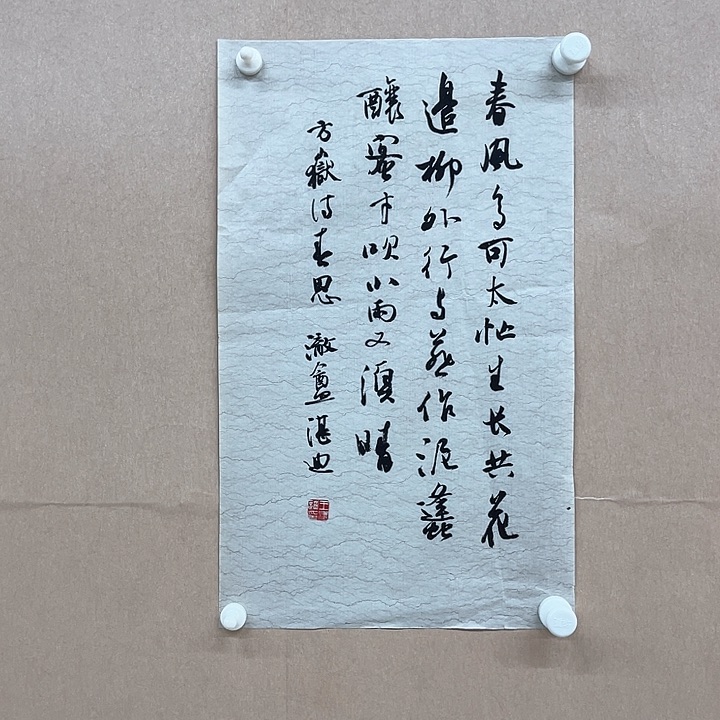 春風多可太忙生长共花
邊柳外行与燕作泥蠭
釀蜜才吹小雨又須晴
方嶽诗春思 盦湛迪